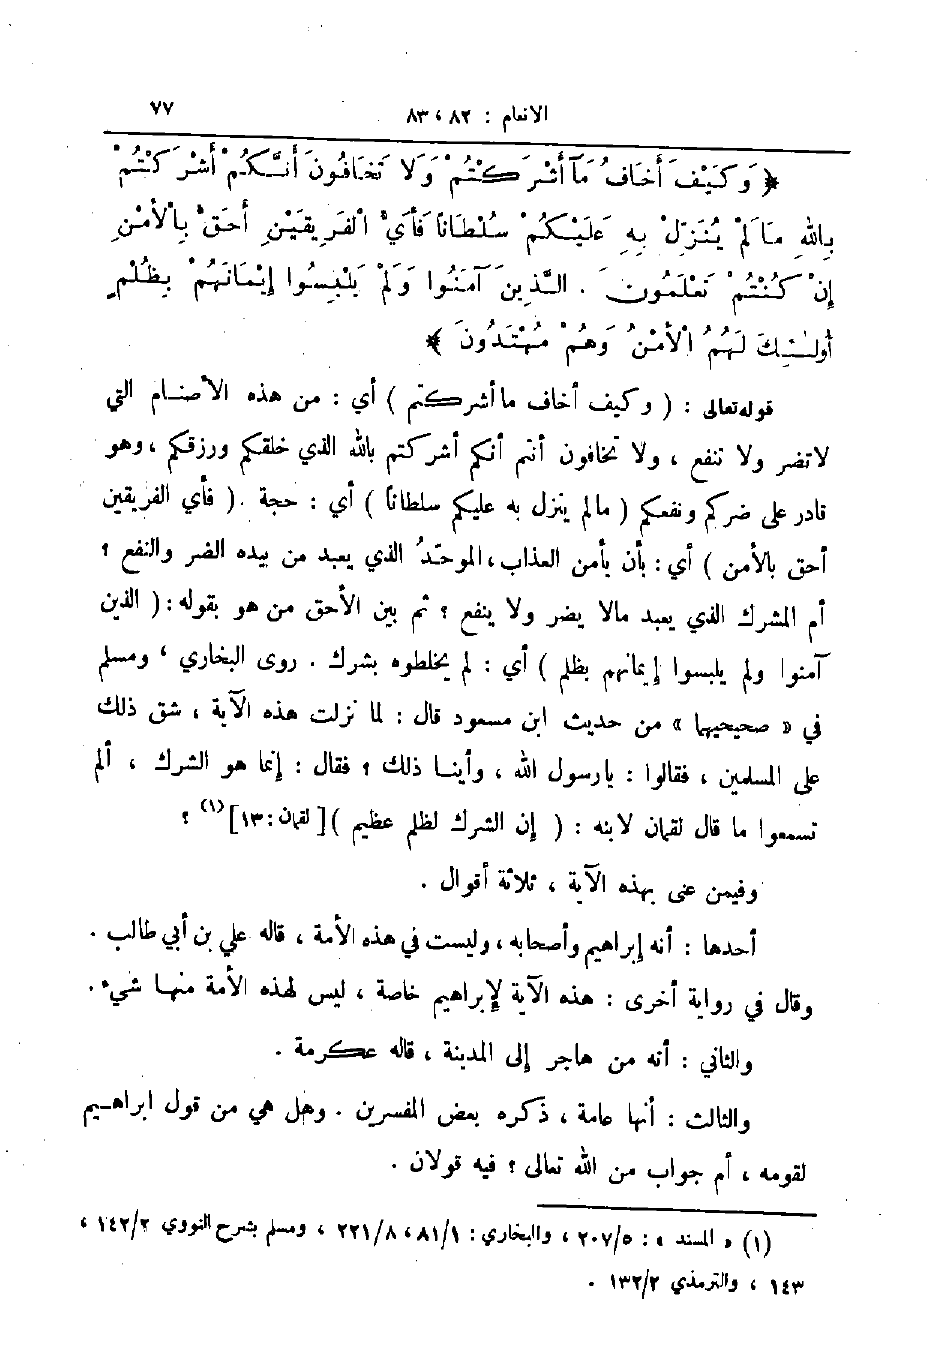 الانعام : ٨٢ ، ٨٣ ٧٧
﴿ وَكَيْفَ أَخَافُ مَآ أَشْرَكْتُمْ وَلَا تَخَافُونَ أَنَّكُمْ أَشْرَكْتُمْ
بِاللهِ مَا لَمْ يُنَزِّلْ بِهِ عَلَيْكُمْ سُلْطَانًا فَأَيُّ الْفَرِيقَيْنِ أَحَقُّ بِالْأَمْنِ
إِنْ كُنْتُمْ تَعْلَمُونَ . الَّذِينَ آمَنُوا وَلَمْ يَلْبِسُوا إِيْمَانَهُمْ بِظُلْمٍ
أُولٰئِكَ لَهُمُ الْأَمْنُ وَهُمْ مُهْتَدُونَ ﴾
قوله تعالى : ( وكيف أخاف ما أشركتم ) أي : من هذه الأصنام التي
لا تضر ولا تنفع ، ولا تخافون أنتم أنكم أشركتم بالله الذي خلقكم ورزقكم ، وهو
قادر على ضركم ونفعكم ( مالم ينزل به عليكم سلطاناً ) أي : حجة . ( فأي الفريقين
أحق بالأمن ) أي : بأن يأمن العذاب ، الموحّدُ الذي يعبد من بيده الضر والنفع ؟
أم المشرك الذي يعبد مالا يضر ولا ينفع ؟ ثم بين الأحق من هو بقوله : ( الذين
آمنوا ولم يلبسوا إيمانهم بظلم ) أي : لم يخلطوه بشرك . روى البخاري ، ومسلم
في « صحيحيهما » من حديث ابن مسعود قال : لما نزلت هذه الآية ، شق ذلك
على المسلمين ، فقالوا : يارسول الله ، وأينا ذلك ؟ فقال : إنما هو الشرك ، ألم
تسمعوا ما قال لقمان لابنه : ( إن الشرك لظلم عظيم ) [ لقمان : ١٣ ] (١) ؟
وفيمن عنى بهذه الآية ، ثلاثة أقوال .
أحدها : أنه إبراهيم وأصحابه ، وليست في هذه الأمة ، قاله علي بن أبي طالب .
وقال في رواية أخرى : هذه الآية لإبراهيم خاصة ، ليس لهذه الأمة منها شيء .
والثاني : أنه من هاجر إلى المدينة ، قاله عكرمة .
والثالث : أنها عامة ، ذكره بعض المفسرين . وهل هي من قول ابراهيم
لقومه ، أم جواب من الله تعالى ؟ فيه قولان .
(١) « المسند » : ٥/٢٠٧ ، والبخاري : ١/٨١ ، ٨/٢٢١ ، ومسلم بشرح النووي ٢/١٤٢ ،
١٤٣ ، والترمذي ٢/١٣٢ .